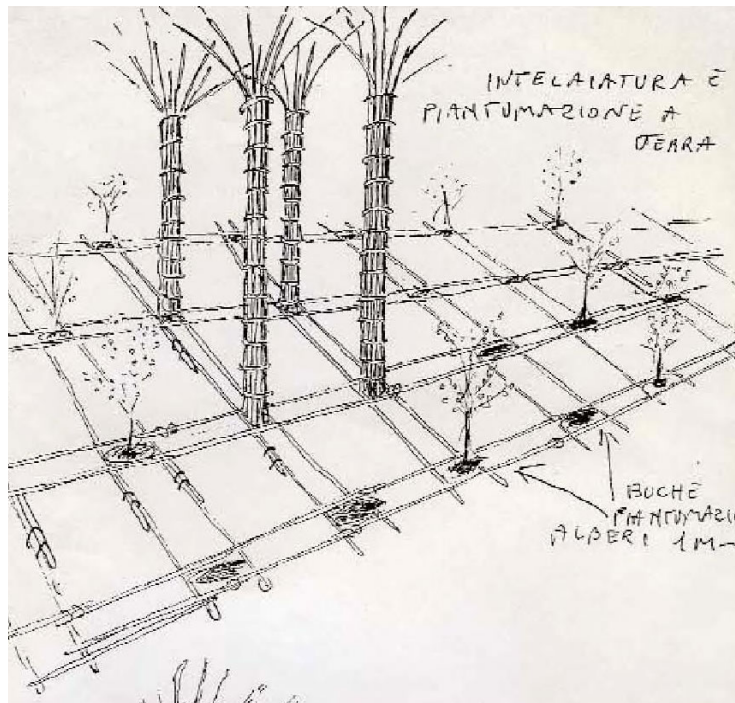 INTELAIATURA E
PIANTUMAZIONE A
TERRA
BUCHE
PIANTUMAZI
ALBERI 1M-